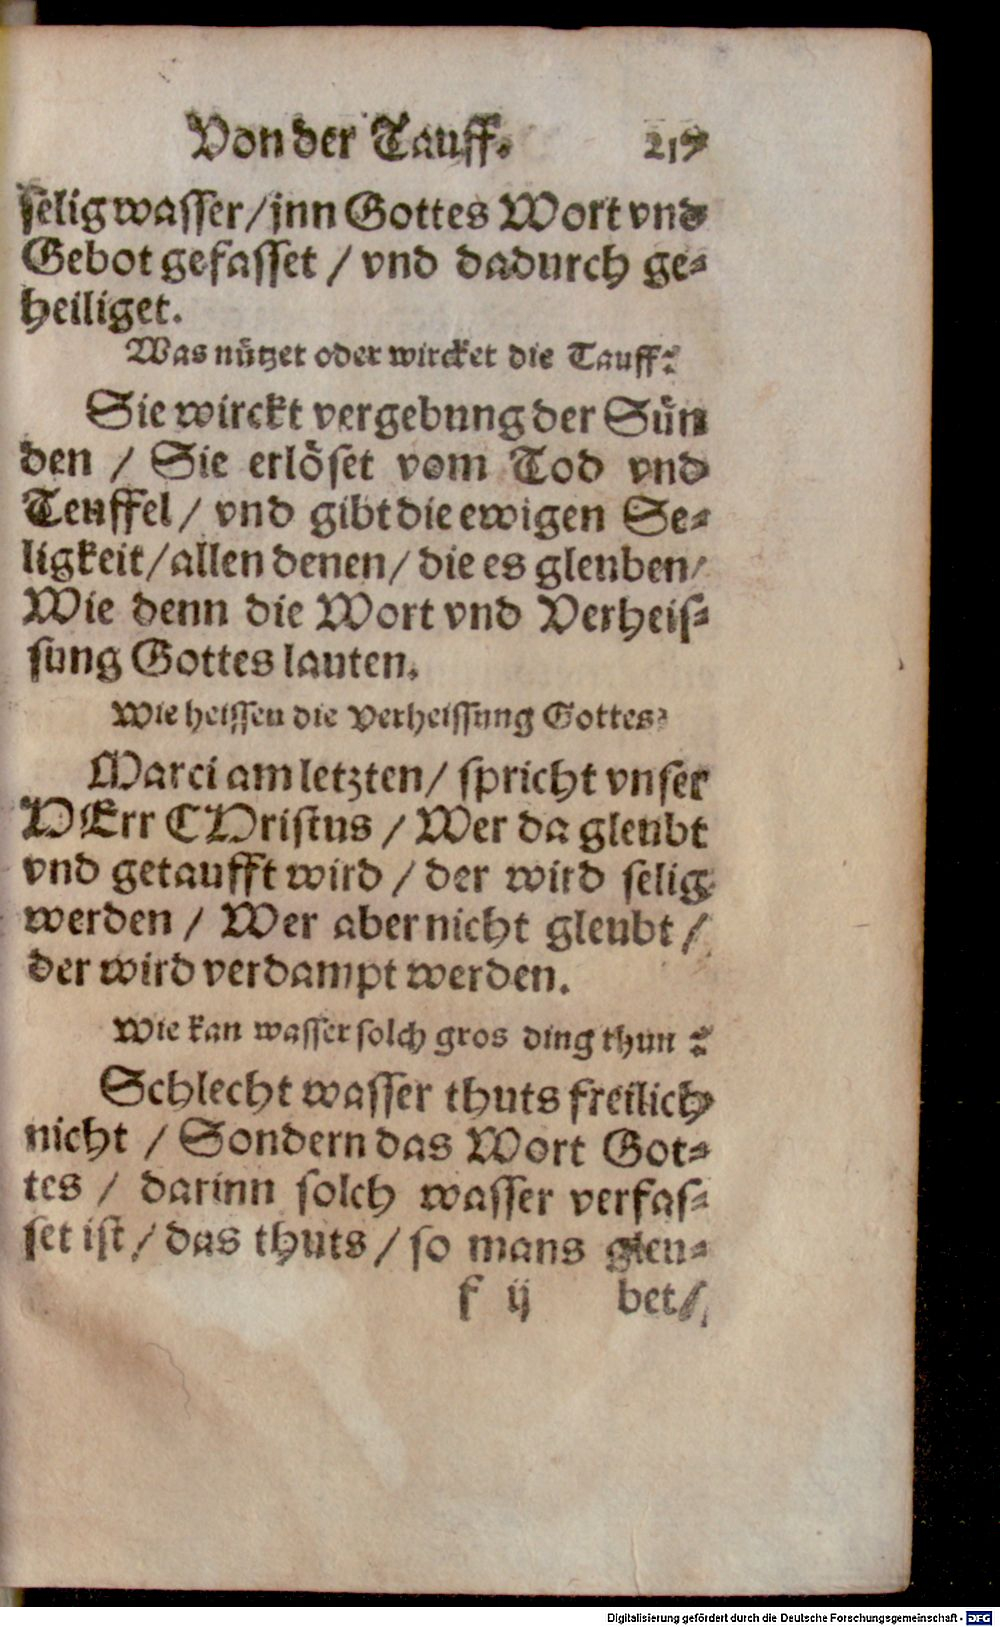 Von der Tauff. 219
selig wasser/ jnn Gottes Wort vnd
Gebot gefasset / vnd dadurch ge-
heiliget.
Was nützet oder wircket die Tauff?
Sie wirckt vergebung der Sün
den / Sie erlöset vom Tod vnd
Teuffel / vnd gibt die ewigen Se-
ligkeit/ allen denen/ die es gleuben/
Wie denn die Wort vnd Verheis-
sung Gottes lauten.
Wie heissen die Verheissung Gottes?
Marci am letzten/ spricht vnser
HErr CHristus / Wer da gleubt
vnd getaufft wird / der wird selig
werden / Wer aber nicht gleubt /
der wird verdampt werden.
Wie kan wasser solch gros ding thun?
Schlecht wasser thuts freilich
nicht / Sondern das Wort Got-
tes / darinn solch wasser verfas-
set ist / das thuts / so mans gleu-
f ij bet/
Digitalisierung gefördert durch die Deutsche Forschungsgemeinschaft - DFG